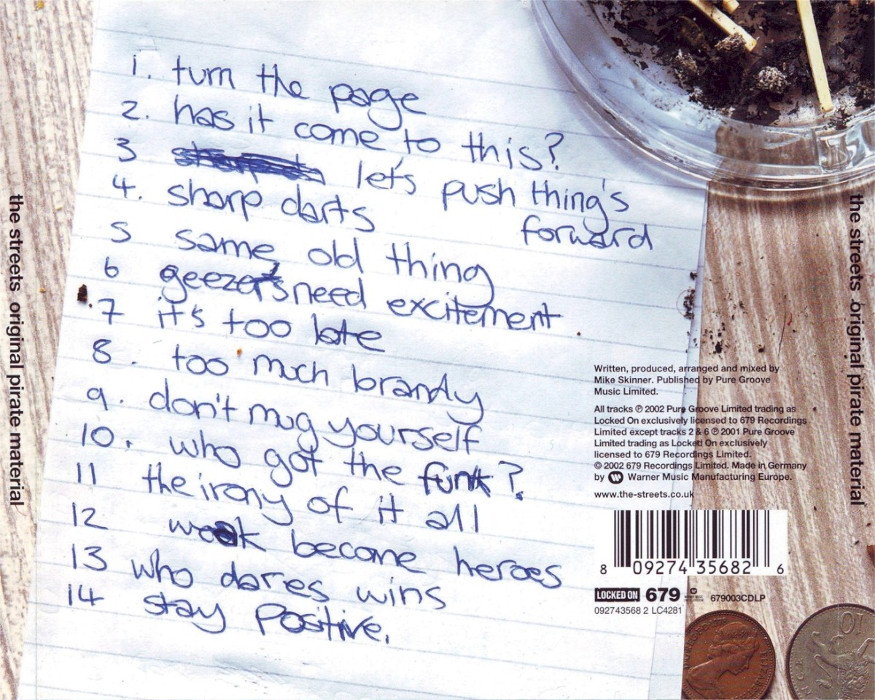 the streets original pirate material
1. turn the page
2. has it come to this?
3 let's push thing's
forward
4. sharp darts
5 same old thing
6 geezers need excitement
7 it's too late
8. too much brandy
9. don't mug yourself
10. who got the funk?
11 the irony of it all
12 weak become heroes
13 who dares wins
14 stay Positive.
Written, produced, arranged and mixed by
Mike Skinner. Published by Pure Groove
Music Limited.
All tracks ℗ 2002 Pure Groove Limited trading as
Locked On exclusively licensed to 679 Recordings
Limited except tracks 2 & 6 ℗ 2001 Pure Groove
Limited trading as Locked On exclusively
licensed to 679 Recordings Limited.
© 2002 679 Recordings Limited. Made in Germany
by Warner Music Manufacturing Europe.
www.the-streets.co.uk
8 09274 35682 6
LOCKED ON 679 679003CDLP
092743568 2 LC4281
10
the streets original pirate material